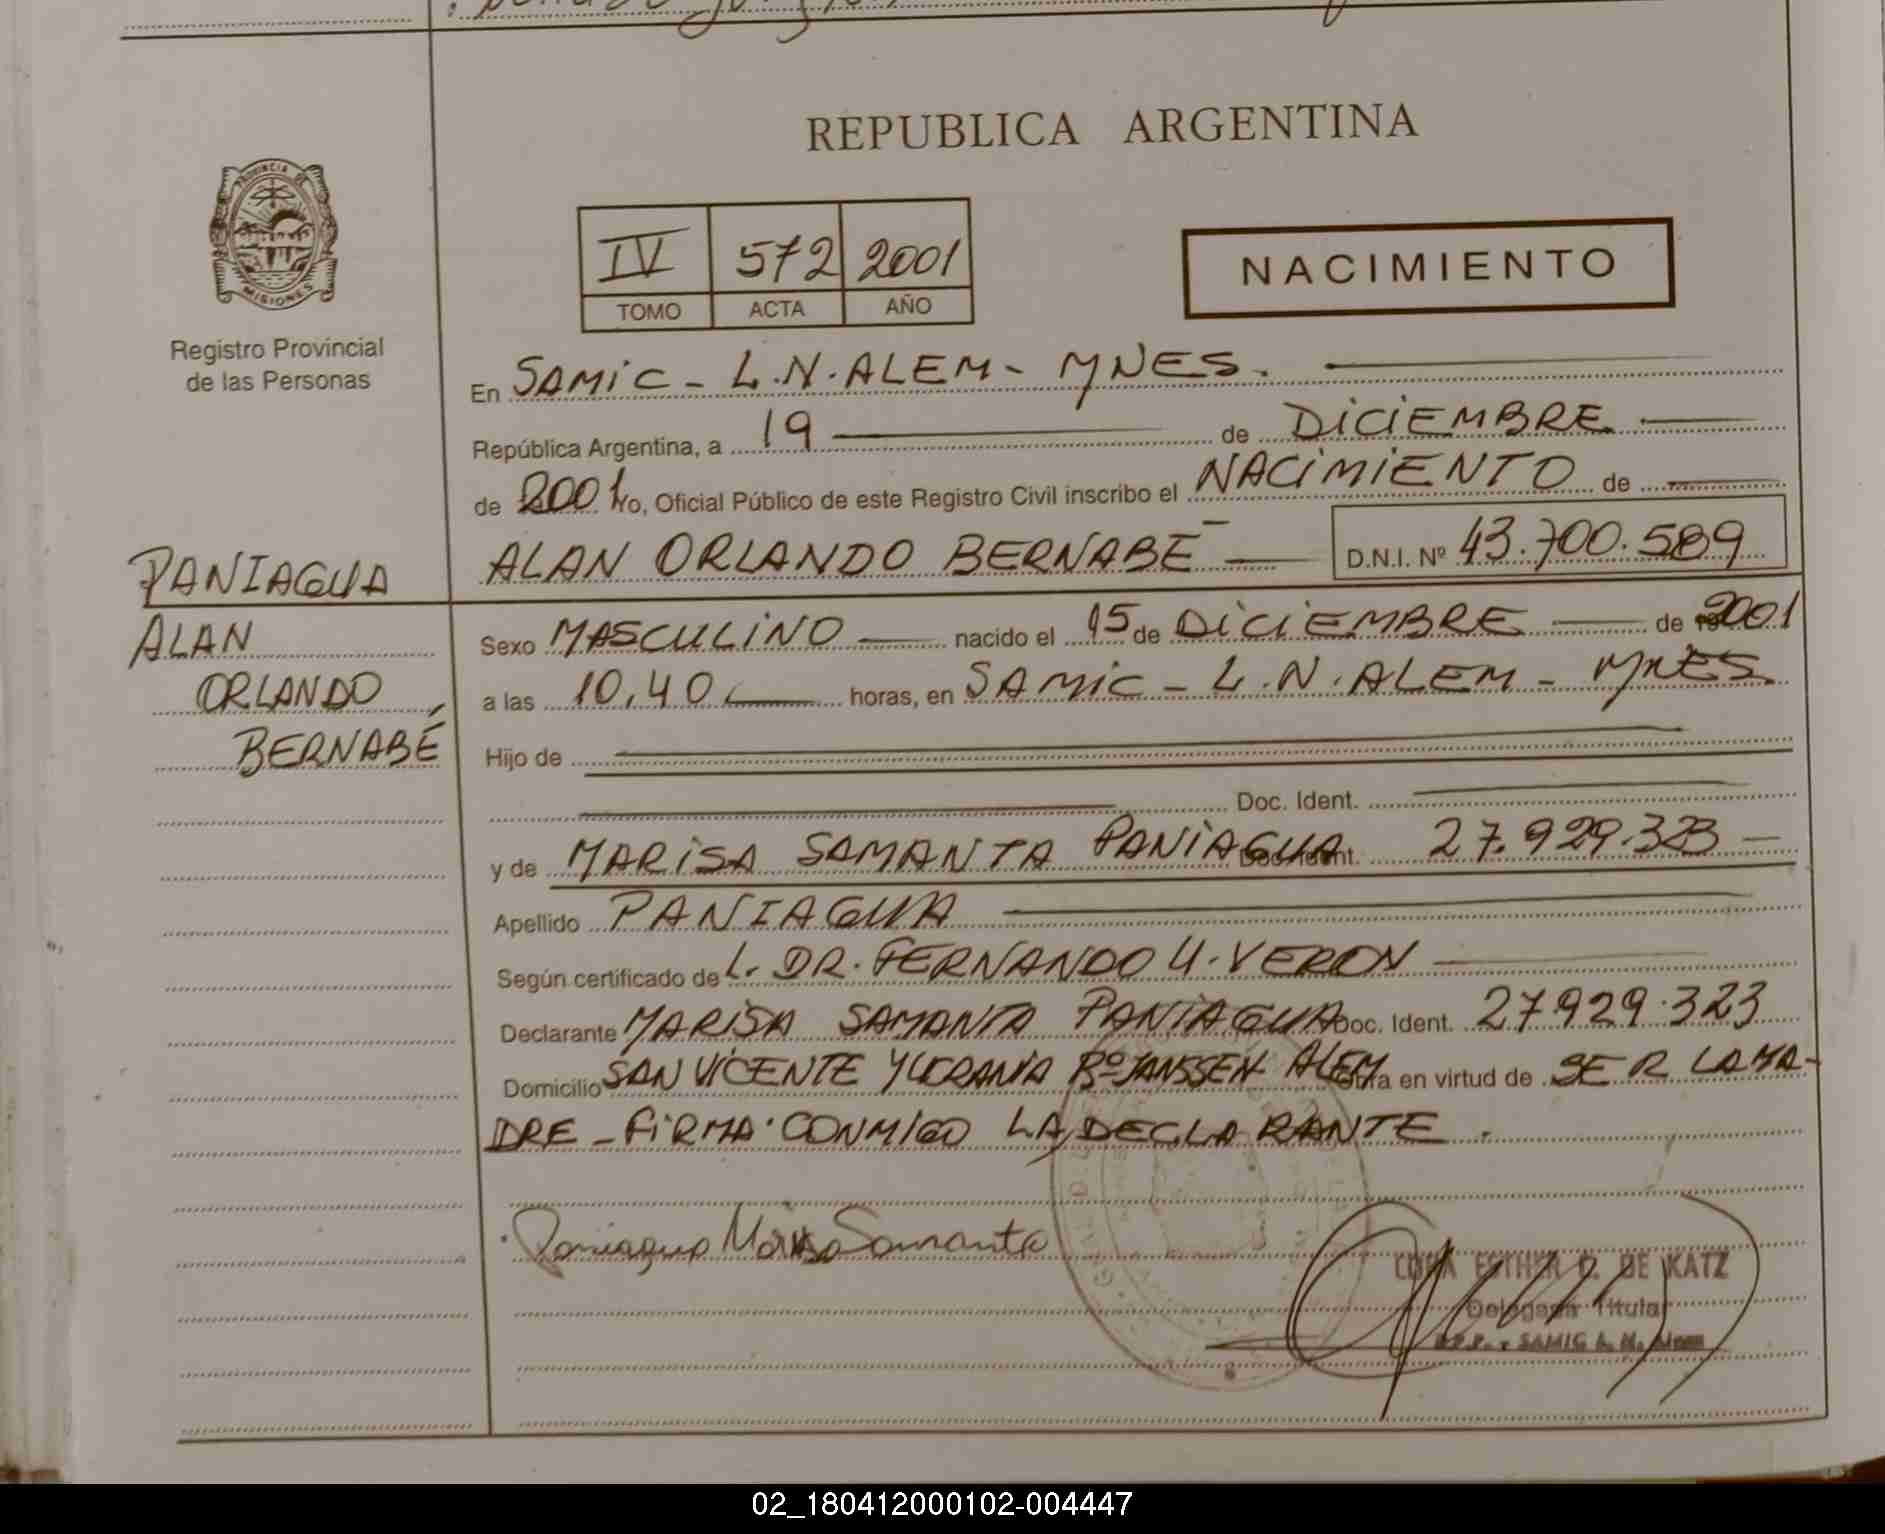 REPUBLICA ARGENTINA
PROVINCIA DE
MISIONES
Registro Provincial
de las Personas
IV 572 2001
TOMO ACTA AÑO
NACIMIENTO
En SAMIC - L.N. ALEM - MNES.
República Argentina, a 19 de DICIEMBRE
de 2001 Yo, Oficial Público de este Registro Civil inscribo el NACIMIENTO de
ALAN ORLANDO BERNABE D.N.I. Nº 43.700.589
PANIAGUA
ALAN
ORLANDO
BERNABÉ
Sexo MASCULINO nacido el 15 de DICIEMBRE de 2001
a las 10,40 horas, en SAMIC - L.N. ALEM - MNES
Hijo de
Doc. Ident.
y de MARISA SAMANTA PANIAGUA Doc. Ident. 27.929.323
Apellido PANIAGUA
Según certificado de L. DR. FERNANDO U. VERON
Declarante MARISA SAMANTA PANIAGUA Doc. Ident. 27929.323
Domicilio SAN VICENTE Y UCRANIA Bº JANSSEN ALEM en virtud de SER LA MA-
DRE - FIRMA CONMIGO LA DECLARANTE.
Paniagua Marisa Samanta
ESTHER DE KATZ
Delegada Titular
SAMIC L. N. Alem
02_180412000102-004447